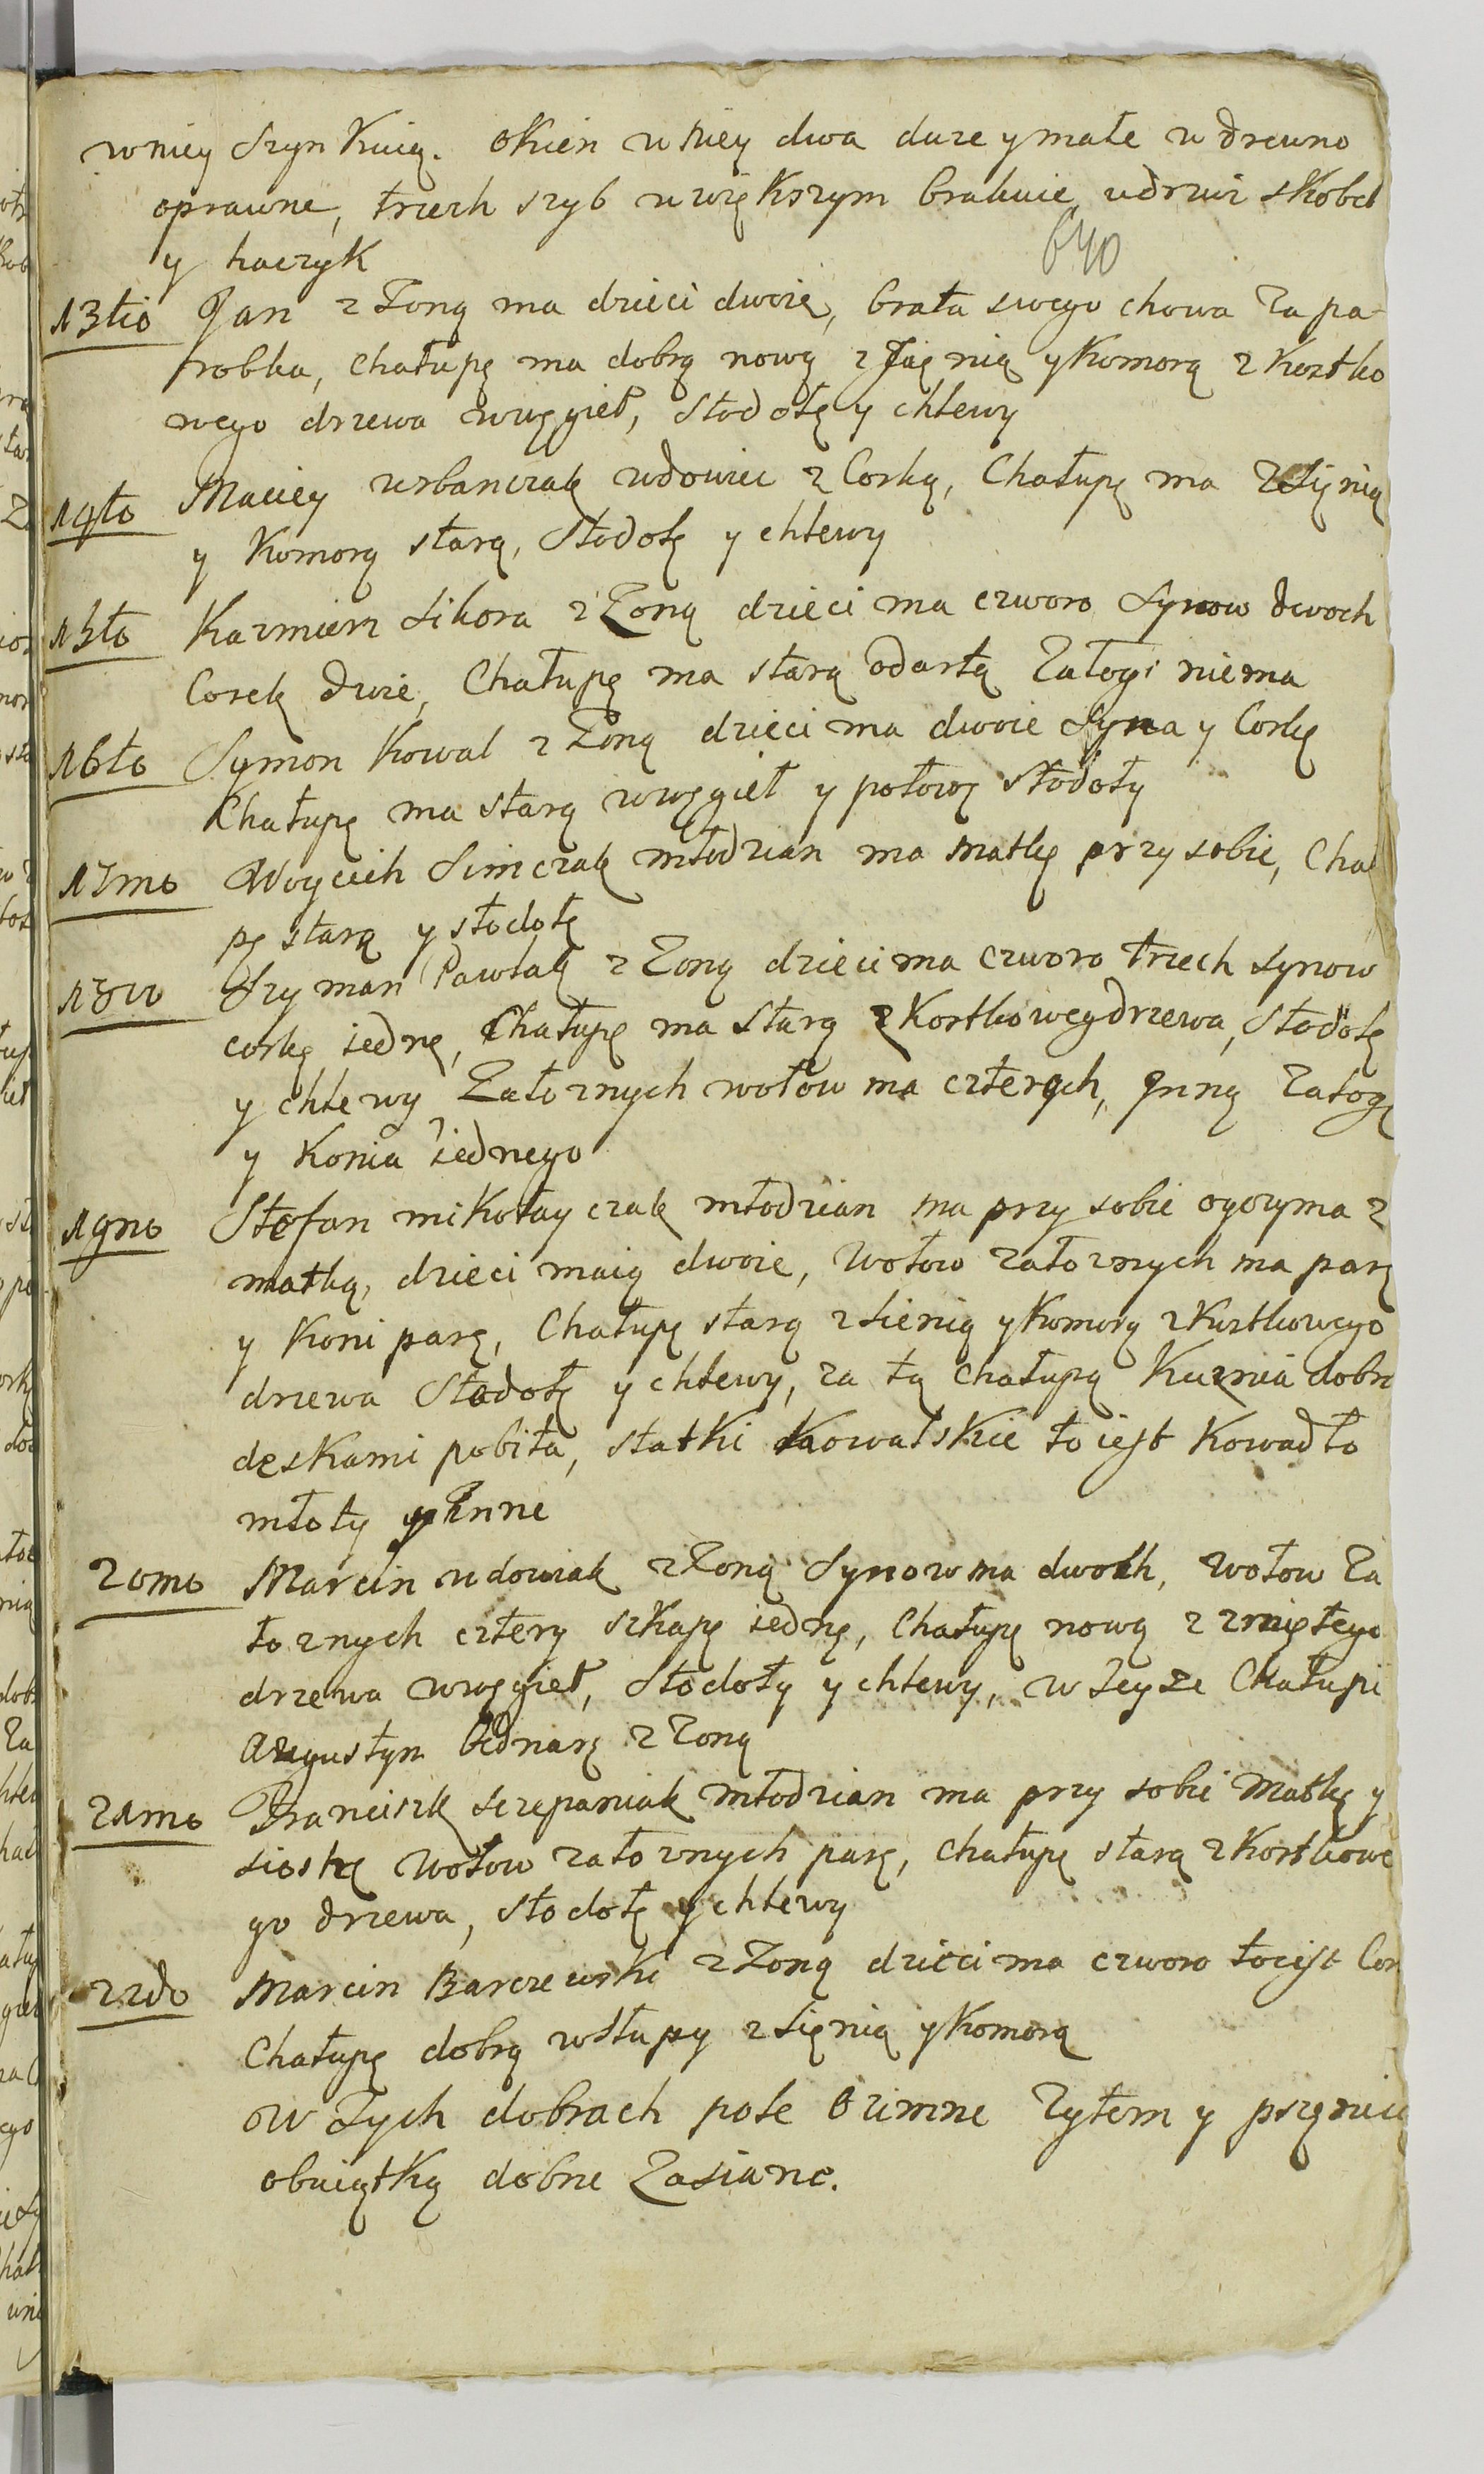 w niey Szynkuią. Okien w niey dwa duze y małe w drewno
oprawne, trzech szyb w większym brakuie, u drzwi skobel
y haczyk
640
13tio Jan z Zoną ma dzieci dwoie, brata swego chowa za pa-
robka, Chałupę ma dobrą nową z Się nią y Komorą z Kostko
wego drzewa w węgieł, Stodołę y chlewy
14to Maciey Urbanczak wdowiec z Corką, Chałupę ma z Się nią
y Komorą starą, Stodołę y chlewy
15to Kazmierz Sikora z Zoną dzieci ma czworo Synow dwoch
Corek dwie, Chałupę ma starą odartą Załogi niema
16to Symon Kowal z Zoną dzieci ma dwoie Syna y Corkę
Chałupę ma starą w węgieł y połowę Stodoły
17mo Woyciech Simczak młodzian ma matkę przy sobie, Chału
pę starą y stodołę
Szyman Pawlak z Zoną dzieci ma czworo trzech synow
corkę iednę, Chałupę ma starą z Kostkowego drzewa, Stodołę
y chlewy Załoznych wołow ma czterech, Inną Załogę
y Konia iednego
19no Stefan mikołay czak młodzian ma przy sobie oyczyma z
matką, dzieci maią dwoie, Wołow załoznych ma parę
y Koni parę, Chałupę starą z Sienią y Komorą z Kostkowego
drzewa Stodołę y chlewy, za tą Chałupą Kuznia dobra
deskami pobita, statki Kowalskie to iest Kowadło
młoty y Inne
20mo Marcin wdowiak z Zoną Synow ma dwoch, Wołow Za
łoznych cztery szkapę iednę, Chałupę nową z rzniętego
drzewa w węgieł, Stodoły y chlewy, w teyze Chałupie
Augustyn Bednarz z Zoną
21mo Franciszk Sczepaniak młodzian ma przy sobie Matkę y
siostrę Wołow załoznych parę, Chałupę starą z Kostkowe
go drzewa, Stodołę y chlewy
22do Marcin Barczewski z Zoną dzieci ma czworo toiest Cor
Chałupę dobrą w Słupy z Się nią y Komorą
w Tych dobrach pole Ozimne Zytem y pszenicą
obwiątką dobrze Zasiane.